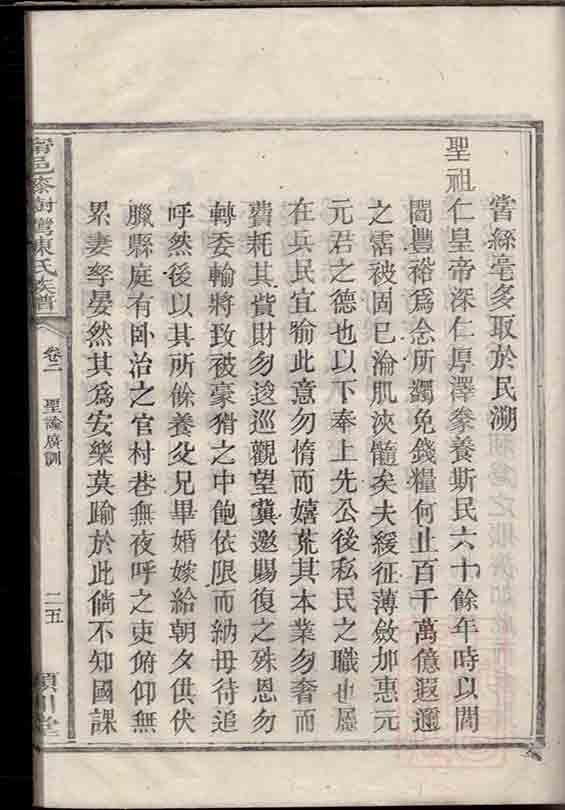 嘗絲毫多取於民溯
聖祖仁皇帝深仁厚澤豢養斯民六十餘年時以閭
閻豐裕爲念所蠲免錢糧何止百千萬億遐邇
之霑被固已淪肌浹髓矣夫緩征薄斂加惠元
元君之德也以下奉上先公後私民之職也屬
在兵民宜喻此意勿惰而嬉荒其本業勿奢而
費耗其貲財勿逡巡觀望冀邀賜復之殊恩勿
轉委輸將致被豪猾之中飽依限而納毋待追
呼然後以其所餘養父兄畢婚嫁給朝夕供伏
臘縣庭有卧治之官村巷無夜呼之吏俯仰無
累妻孥晏然其爲安樂莫踰於此倘不知國課
陳氏族譜
卷二
聖諭廣訓
二五